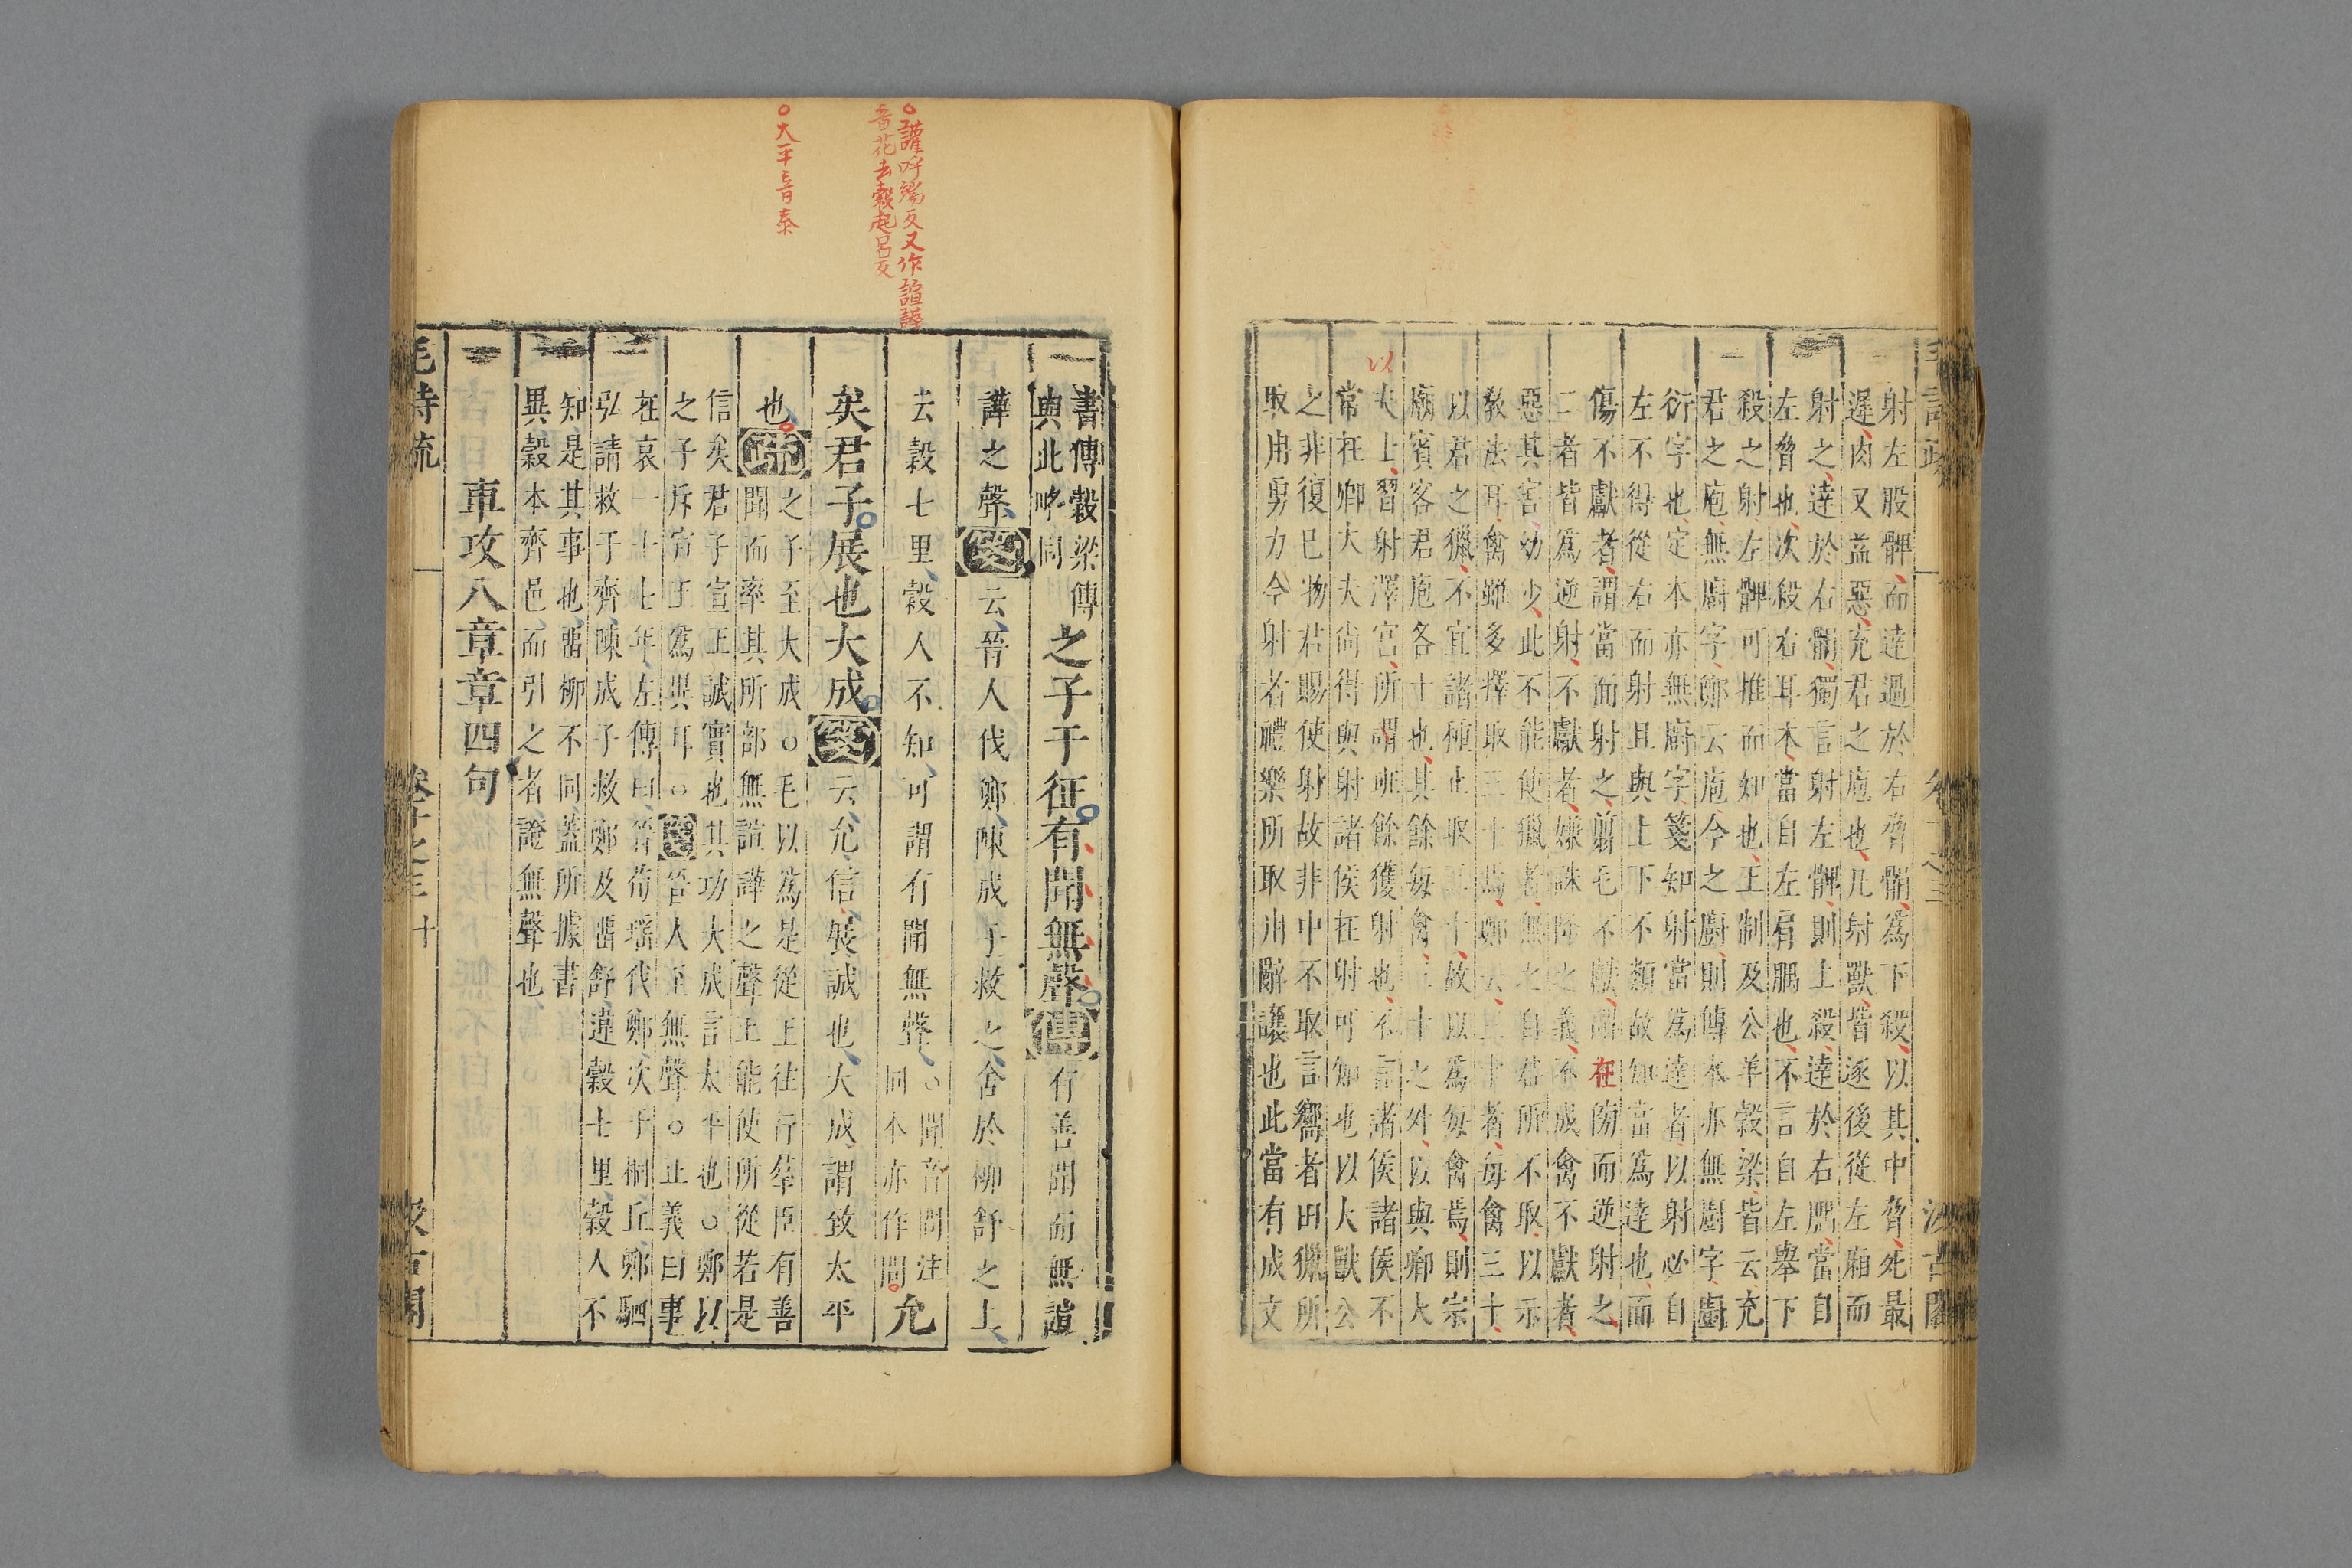 射左股髀而達過於右脅䯚為下殺以其中脅死最
遲肉又益惡充君之庖也凡射獸皆逐後從左廂而
射之達於右䯚獨言射左髀則上殺達於右䯚當自
左脅也次殺右耳本當自左肩腢也不言自左舉下
殺之射左髀可推而知也王制及公羊穀梁皆云充
君之庖無廚字鄭云庖今之廚則傳本亦無廚字廚
衍字也定本亦無廚字箋知射當為達者以射必自
左不得從右而射且與上下不類故知當為達也而
傷不獻者謂當面射之翦毛不獻謂在傍而逆射之
二者皆為逆射不獻者嫌誅降之義不成禽不獻者
惡其害幼少此不能使獵者無之自君所不取以示
教法耳禽雖多擇取三十焉鄭云三十者每禽三十
以君之獵不宜諸種止取三十故以為每禽焉則宗
廟賓客君庖各十也其餘每禽三十之外以與卿大
以
夫士習射澤宮所謂班餘獲射也不言諸侯諸侯不
常在卿大夫尚得與射諸侯在射可知也以大獸公
之非復己物君賜使射故非中不取言嚮者田獵所
取用勇力今射者禮樂所取用辭讓也此當有成文
毛詩疏 卷十之三 汲古閣
○讙呼端反又作諠譁
音花去穀起呂反
○大平音泰
書傳穀梁傳
與此略同
之子于征有聞無聲傳有善聞而無諠
譁之聲箋云晉人伐鄭陳成子救之舍於柳舒之上
去穀七里穀人不知可謂有聞無聲
○聞音問注
同本亦作問
允
矣君子展也大成箋云允信展誠也大成謂致太平
也疏
之子至大成○毛以為是從王往行羣臣有善
聞而率其所部無諠譁之聲王能使所從若是
信矣君子宣王誠實也其功大成言太平也○鄭以
之子斥宣王為異耳○箋晉人至無聲○正義曰事
在哀二十七年左傳曰晉荀瑤伐鄭次于桐丘鄭駟
弘請救于齊陳成子救鄭及畱舒違穀七里穀人不
知是其事也畱柳不同蓋所據書
異穀本齊邑而引之者證無聲也
車攻八章章四句
毛詩疏 卷十之三 十 汲古閣